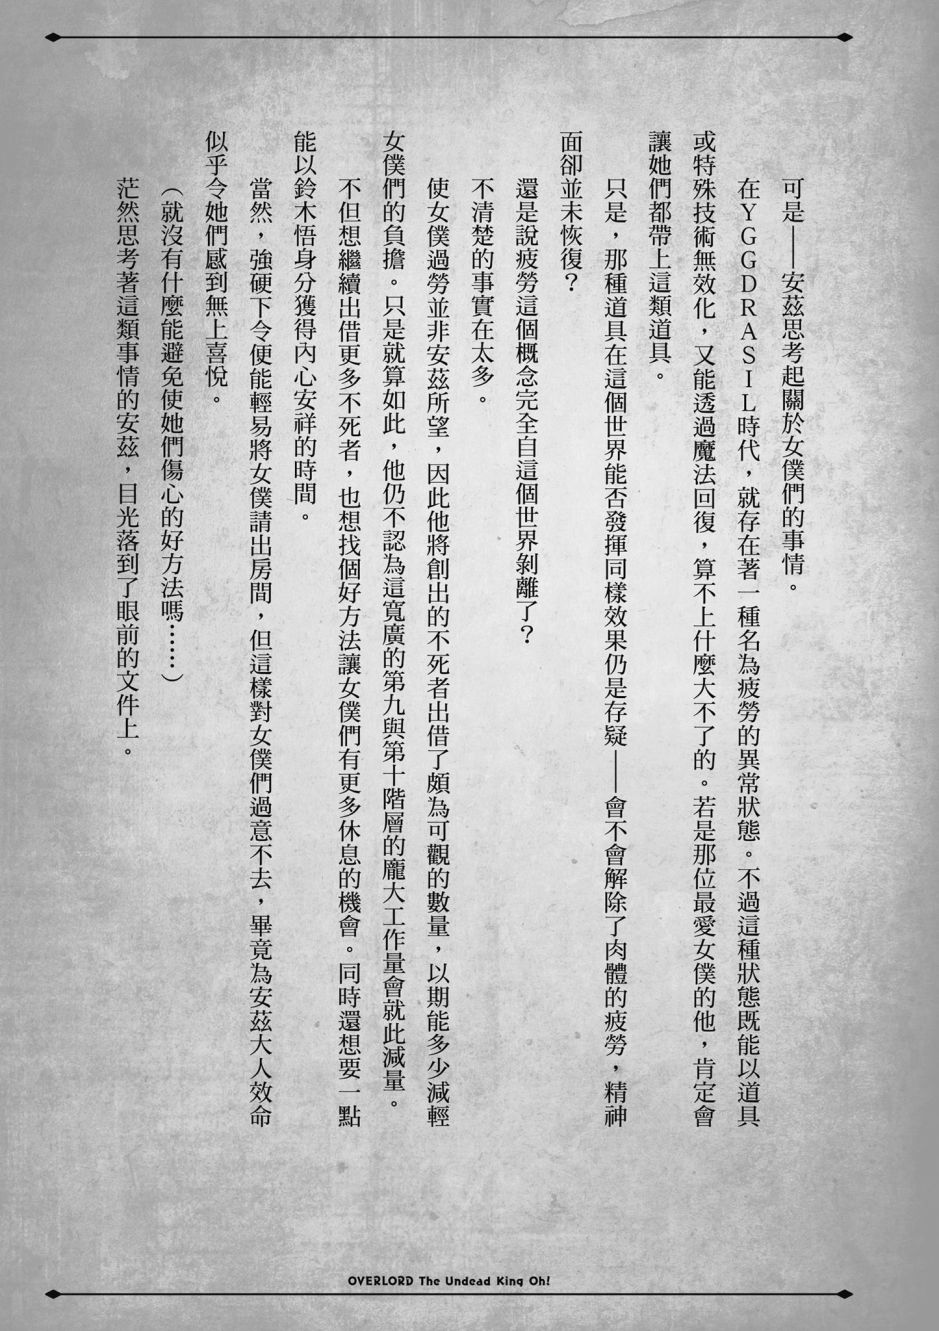 可是——安茲思考起關於女僕們的事情。
在YGGDRASIL時代，就存在著一種名為疲勞的異常狀態。不過這種狀態既能以道具
或特殊技術無效化，又能透過魔法回復，算不上什麼大不了的。若是那位最愛女僕的他，肯定會
讓她們都帶上這類道具。
只是，那種道具在這個世界能否發揮同樣效果仍是存疑——會不會解除了肉體的疲勞，精神
面卻並未恢復？
還是說疲勞這個概念完全自這個世界剝離了？
不清楚的事實在太多。
使女僕過勞並非安茲所望，因此他將創出的不死者出借了頗為可觀的數量，以期能多少減輕
女僕們的負擔。只是就算如此，他仍不認為這寬廣的第九與第十階層的龐大工作量會就此減量。
不但想繼續出借更多不死者，也想找個好方法讓女僕們有更多休息的機會。同時還想要一點
能以鈴木悟身分獲得內心安祥的時間。
當然，強硬下令便能輕易將女僕請出房間，但這樣對女僕們過意不去，畢竟為安茲大人效命
似乎令她們感到無上喜悅。
（就沒有什麼能避免使她們傷心的好方法嗎……）
茫然思考著這類事情的安茲，目光落到了眼前的文件上。
OVERLORD The Undead King Oh!